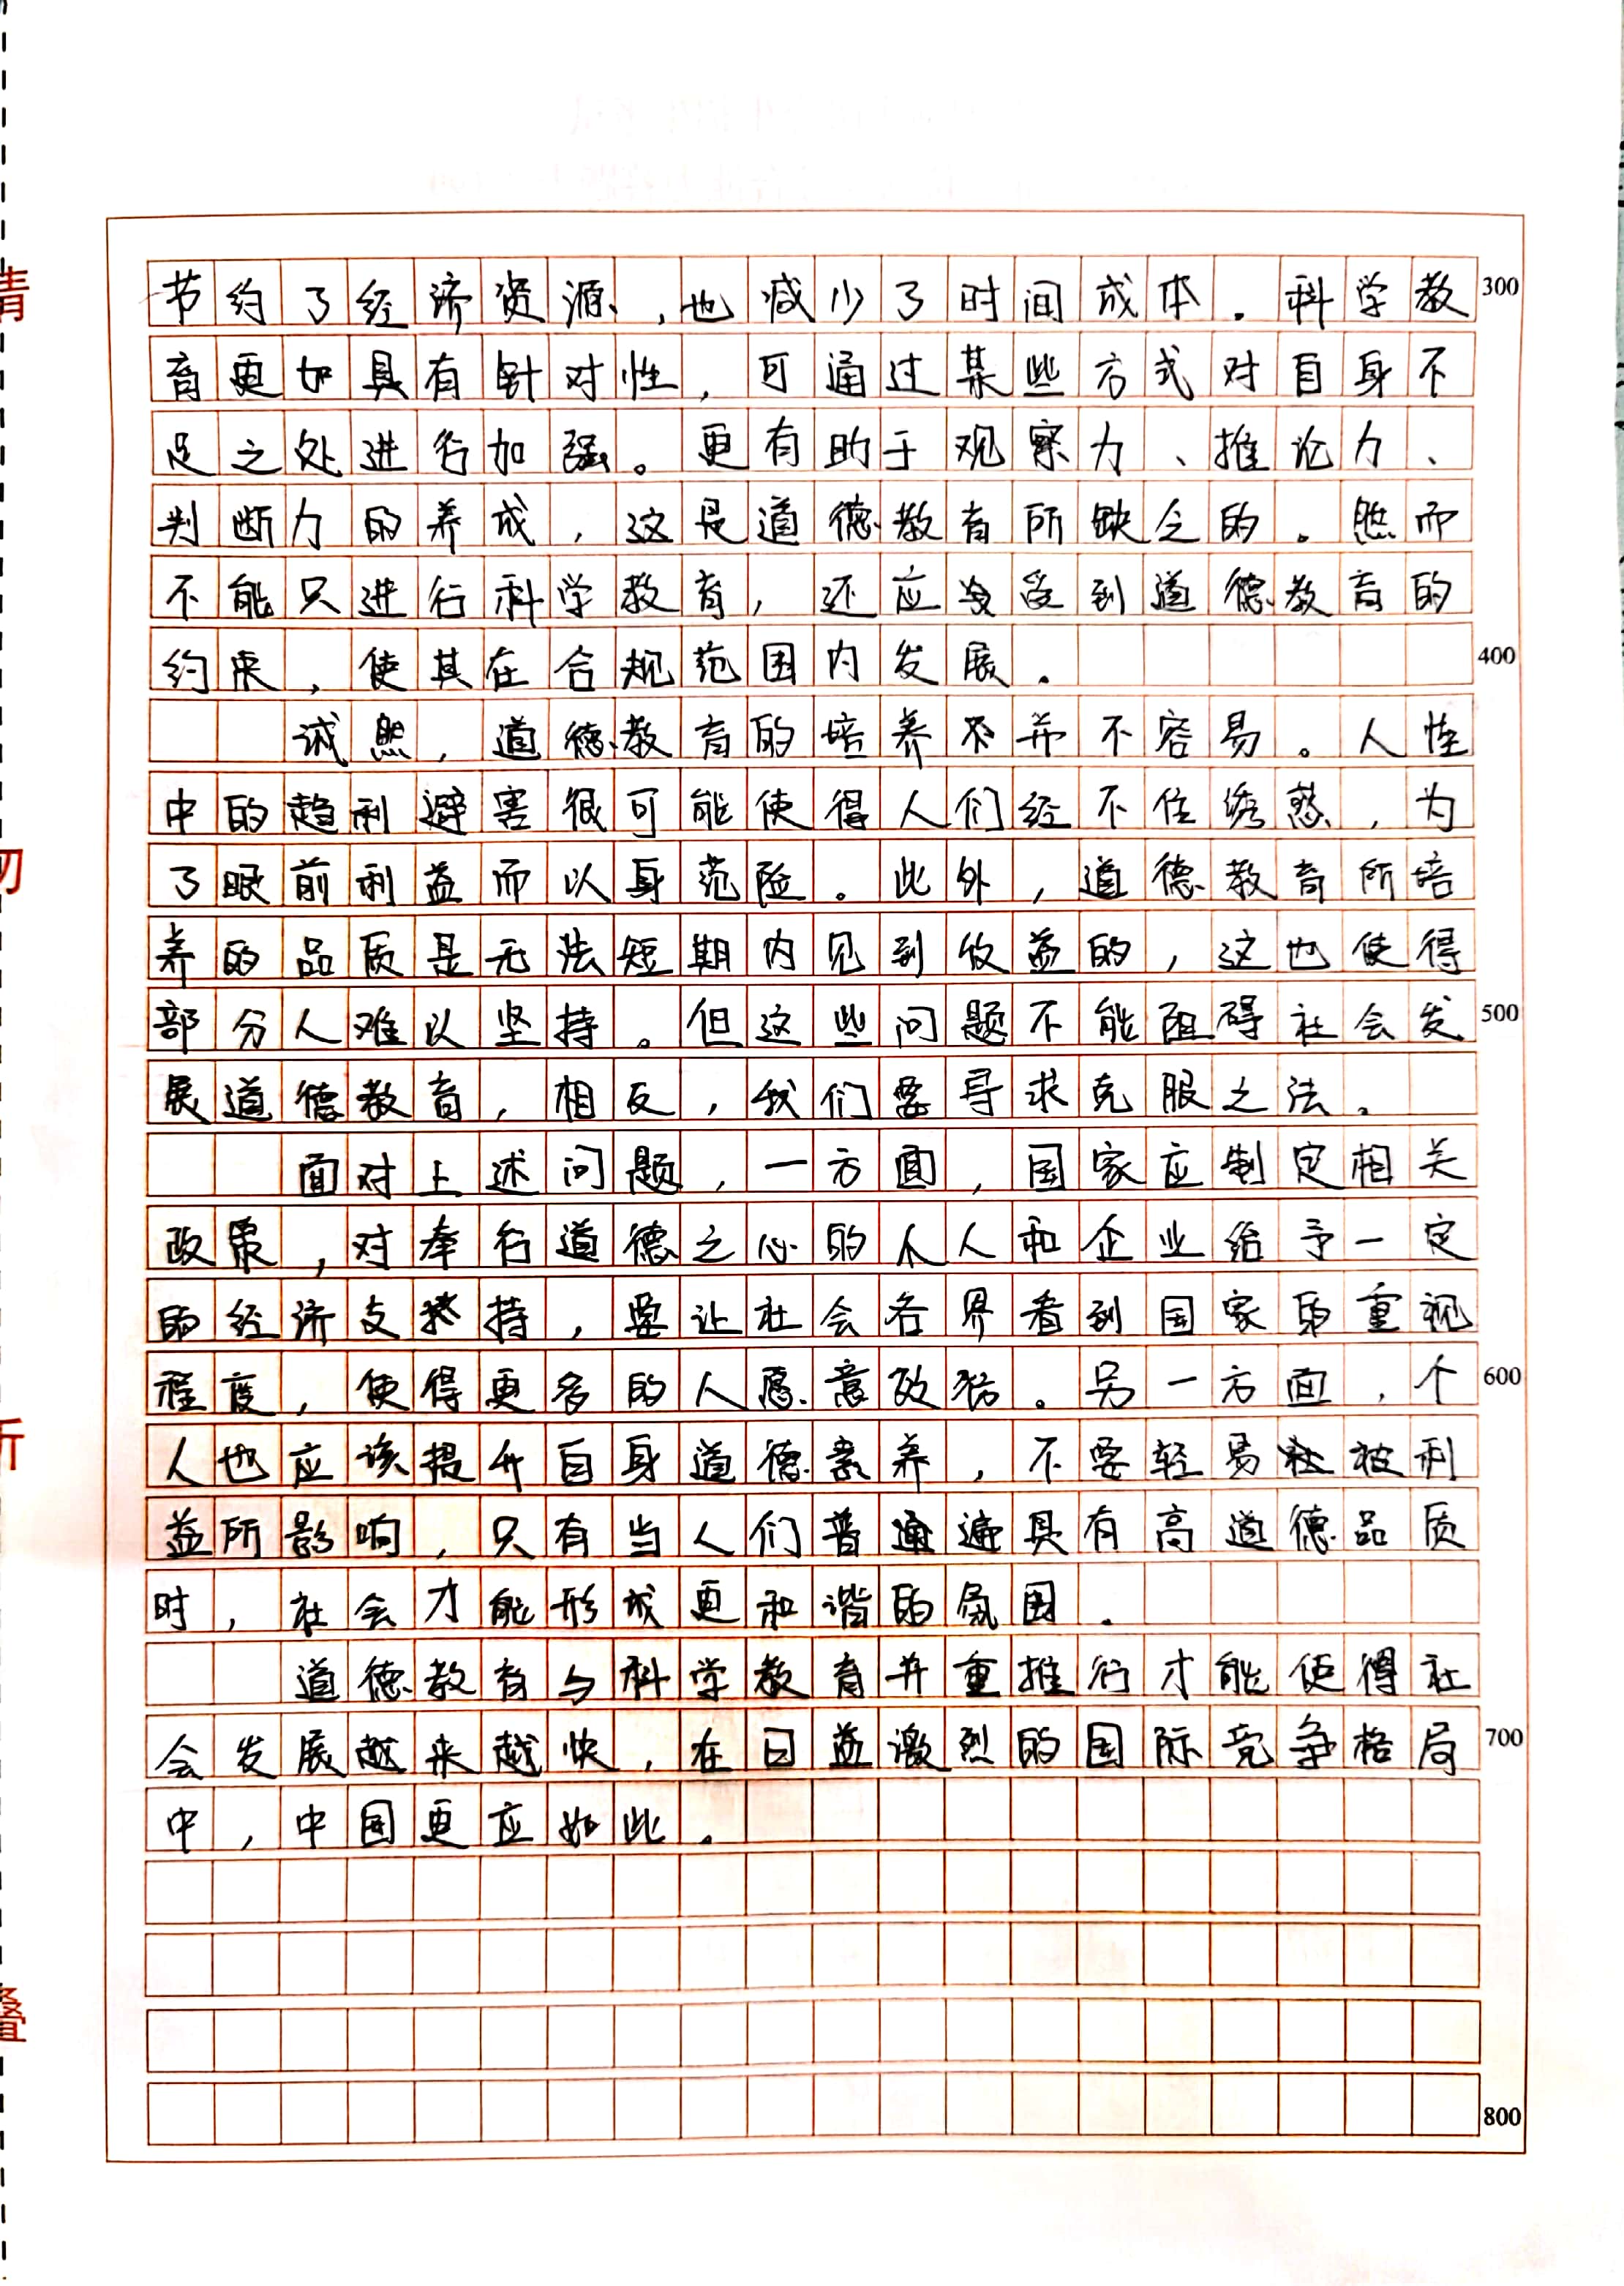 节约了经济资源,也减少了时间成本.科学教 300
育更如具有针对性,可通过某些方式对自身不
足之处进行加强。更有助于观察力、推论力、
判断力的养成,这是道德教育所缺乏的。然而
不能只进行科学教育,还应受到道德教育的
约束,使其在合规范围内发展. 400
诚然,道德教育的培养并不容易。人性
中的趋利避害很可能使得人们经不住诱惑,为
了眼前利益而以身范险。此外,道德教育所培
养的品质是无法短期内见到收益的,这也使得
部分人难以坚持。但这些问题不能阻碍社会发 500
展道德教育,相反,我们要寻求克服之法。
面对上述问题,一方面,国家应制定相关
政策,对奉行道德之心的个人和企业给予一定
的经济支持,要让社会各界看到国家的重视
程度,使得更多的人愿意改务。另一方面,个 600
人也应该提升自身道德素养,不要轻易被利
益所影响,只有当人们普遍具有高道德品质
时,社会才能形成更和谐的氛围.
道德教育与科学教育并重推行才能使得社
会发展越来越快,在日益激烈的国际竞争格局 700
中,中国更应如此。
800